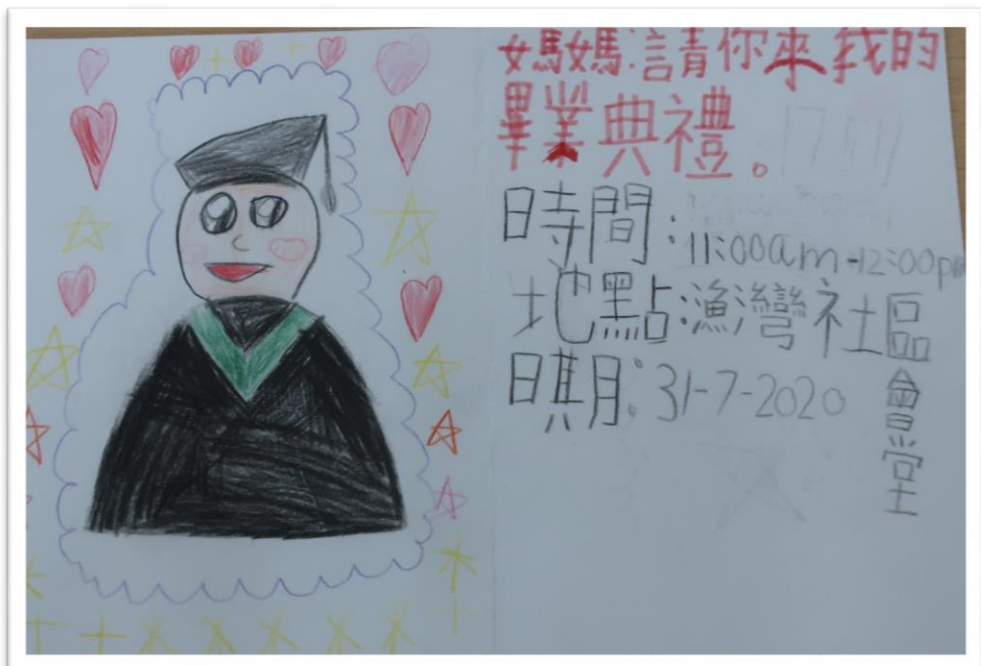 媽媽:請你來我的
畢業典禮。
時間:11:00am-12:00pm
地點:漁灣社區會堂
日期:31-7-2020